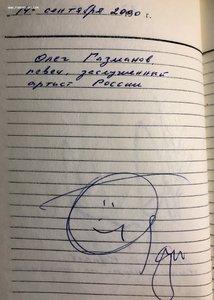 14 сентября 2000 г.
Олег Газманов,
певец, заслуженный
артист России